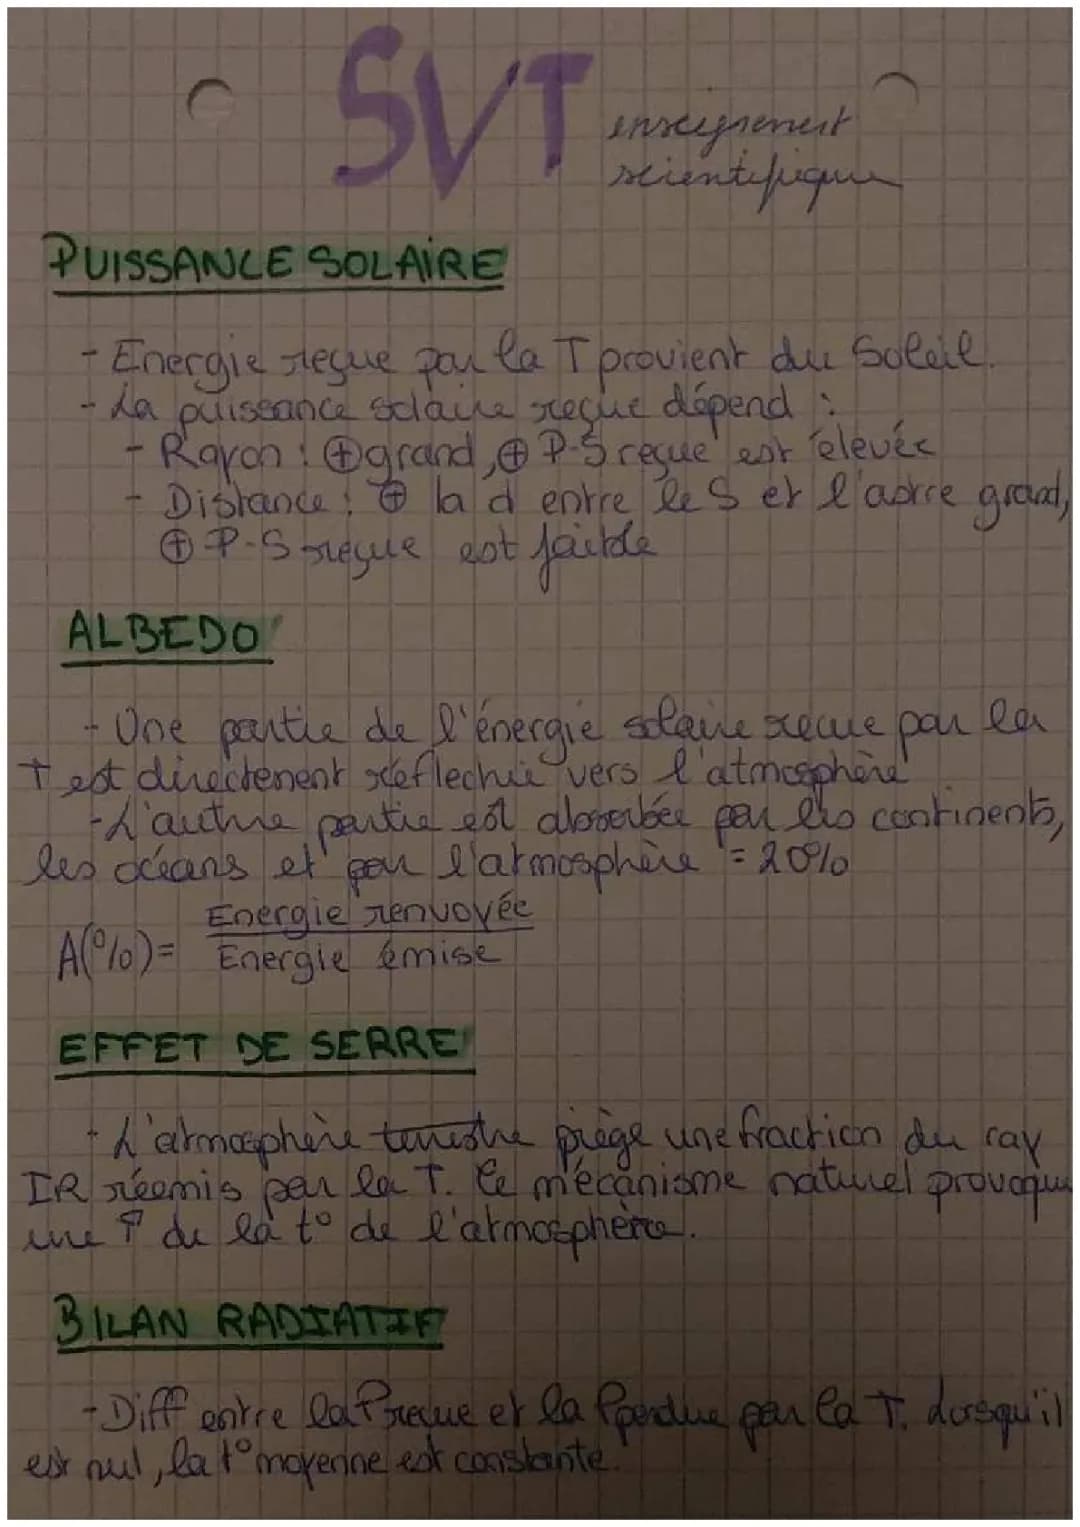 SVT enseignement
scientifique
PUISSANCE SOLAIRE
- Energie reçue par la T provient du Soleil.
- La puissance solaire reçue dépend :
- Rayon : ⊕ grand, ⊕ P-S reçue est élevée
- Distance : ⊕ la d entre le S et l'astre grand,
⊕ P-S reçue est faible
ALBEDO
- Une partie de l'énergie solaire reçue par la
T est directement réflechie vers l'atmosphère
- L'autre partie est absorbée par les continents,
les océans et par l'atmosphère = 20%
A(%) = Energie renvoyée
Energie émise
EFFET DE SERRE
- L'atmosphère terrestre piège une fraction du ray
IR réemis par la T. Ce mécanisme naturel provoque
une ↑ de la t° de l'atmosphère.
BILAN RADIATIF
- Diff entre la P reçue et la P perdue par la T. Lorsqu'il
est nul, la t° moyenne est constante.